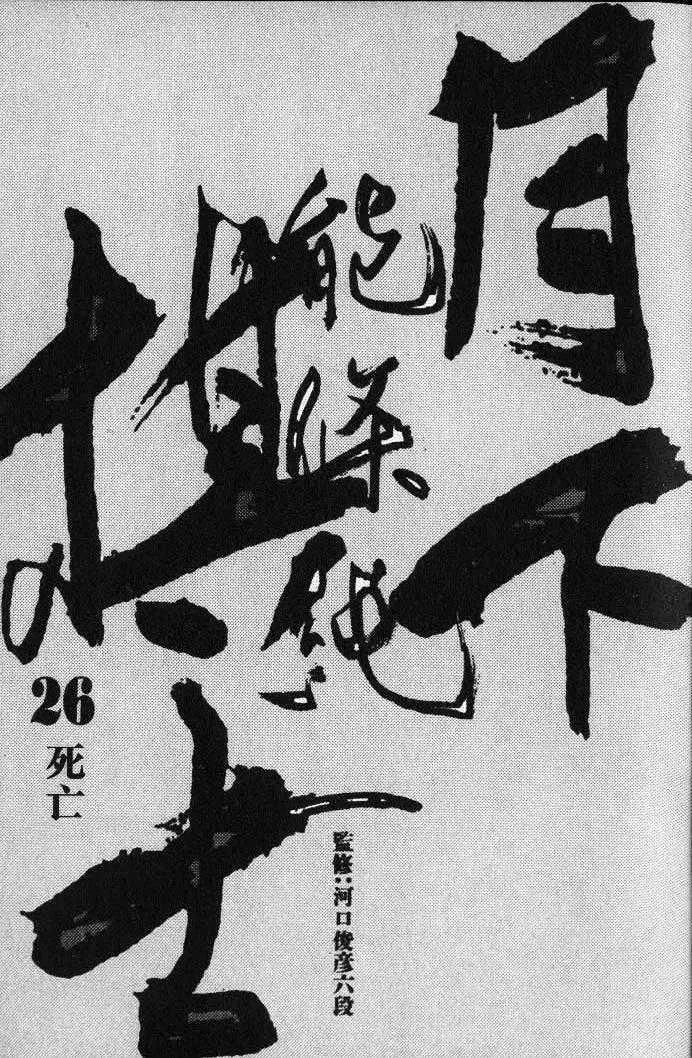 月下
の棋士
能條純一
監修:河口俊彦六段
26
死亡